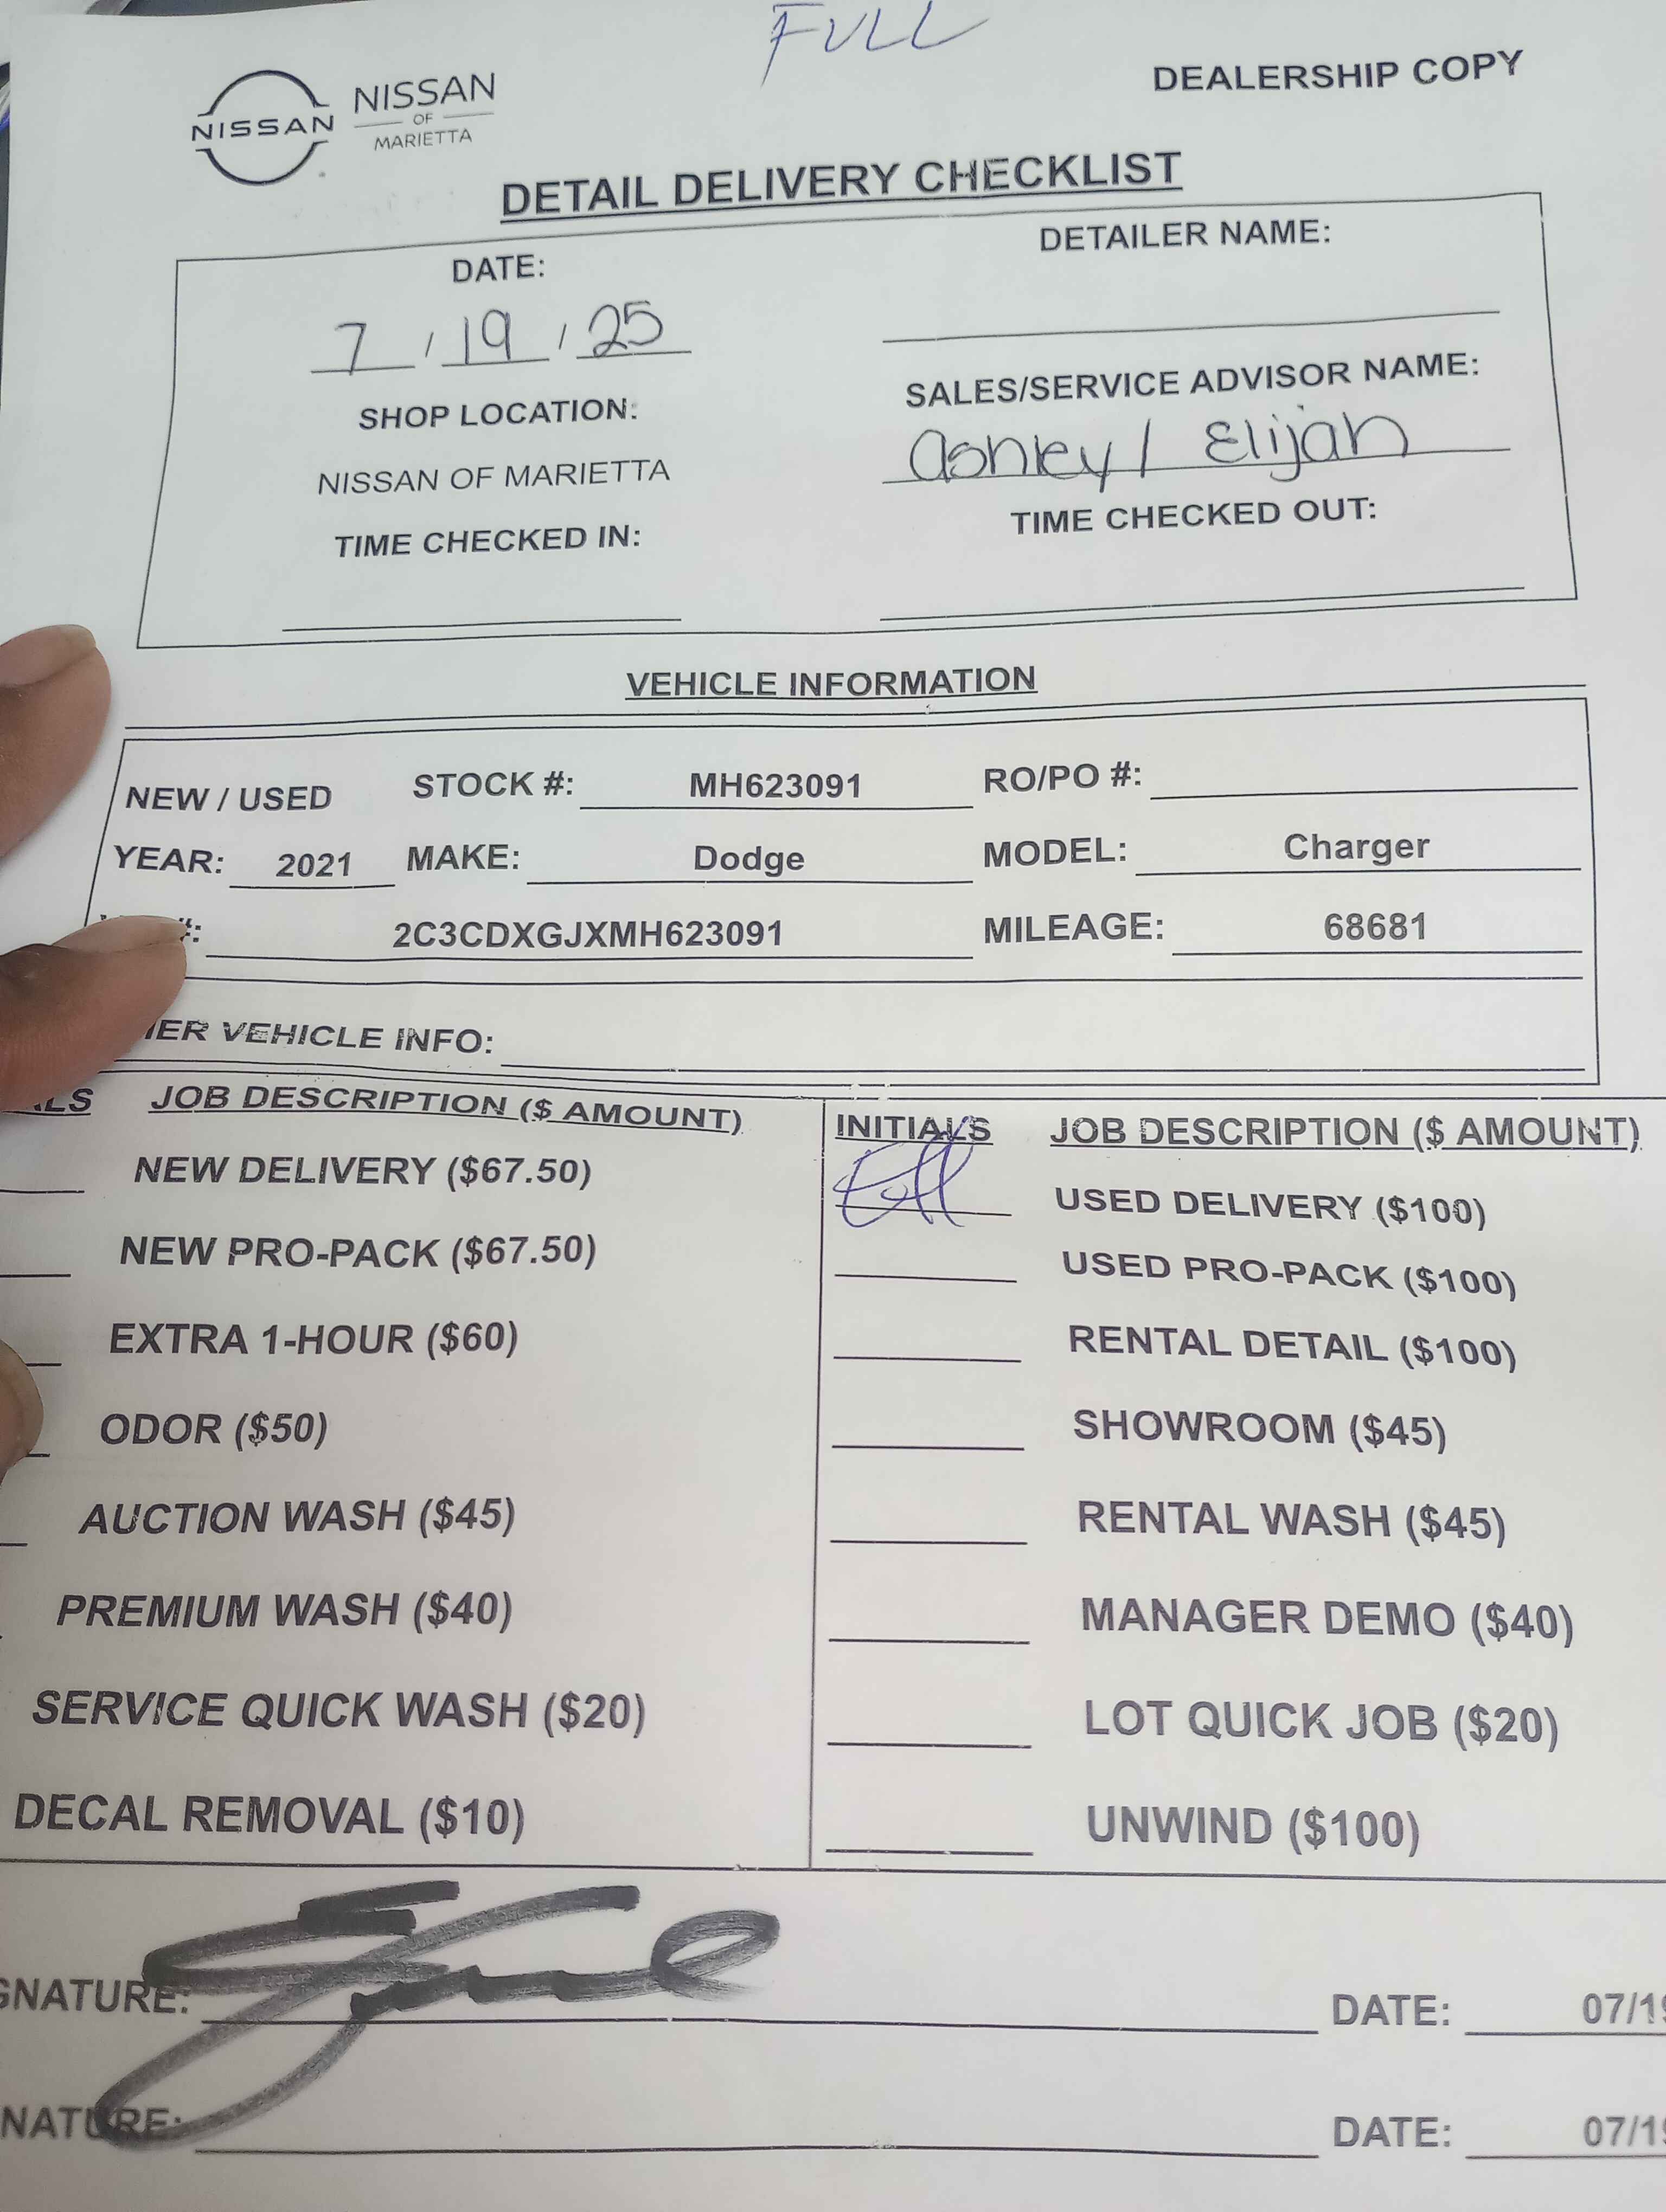 FULL
NISSAN
NISSAN
OF
MARIETTA
DEALERSHIP COPY
DETAIL DELIVERY CHECKLIST
DATE:
7 / 19 / 25
DETAILER NAME:
SHOP LOCATION:
NISSAN OF MARIETTA
SALES/SERVICE ADVISOR NAME:
Ashley / Elijah
TIME CHECKED IN:
TIME CHECKED OUT:
VEHICLE INFORMATION
NEW / USED STOCK #: MH623091 RO/PO #:
YEAR: 2021 MAKE: Dodge MODEL: Charger
#: 2C3CDXGJXMH623091 MILEAGE: 68681
VEHICLE INFO:
JOB DESCRIPTION ($ AMOUNT)
NEW DELIVERY ($67.50)
NEW PRO-PACK ($67.50)
EXTRA 1-HOUR ($60)
ODOR ($50)
AUCTION WASH ($45)
PREMIUM WASH ($40)
SERVICE QUICK WASH ($20)
DECAL REMOVAL ($10)
INITIALS JOB DESCRIPTION ($ AMOUNT)
USED DELIVERY ($100)
USED PRO-PACK ($100)
RENTAL DETAIL ($100)
SHOWROOM ($45)
RENTAL WASH ($45)
MANAGER DEMO ($40)
LOT QUICK JOB ($20)
UNWIND ($100)
GNATURE: DATE: 07/19
NATURE: DATE: 07/19